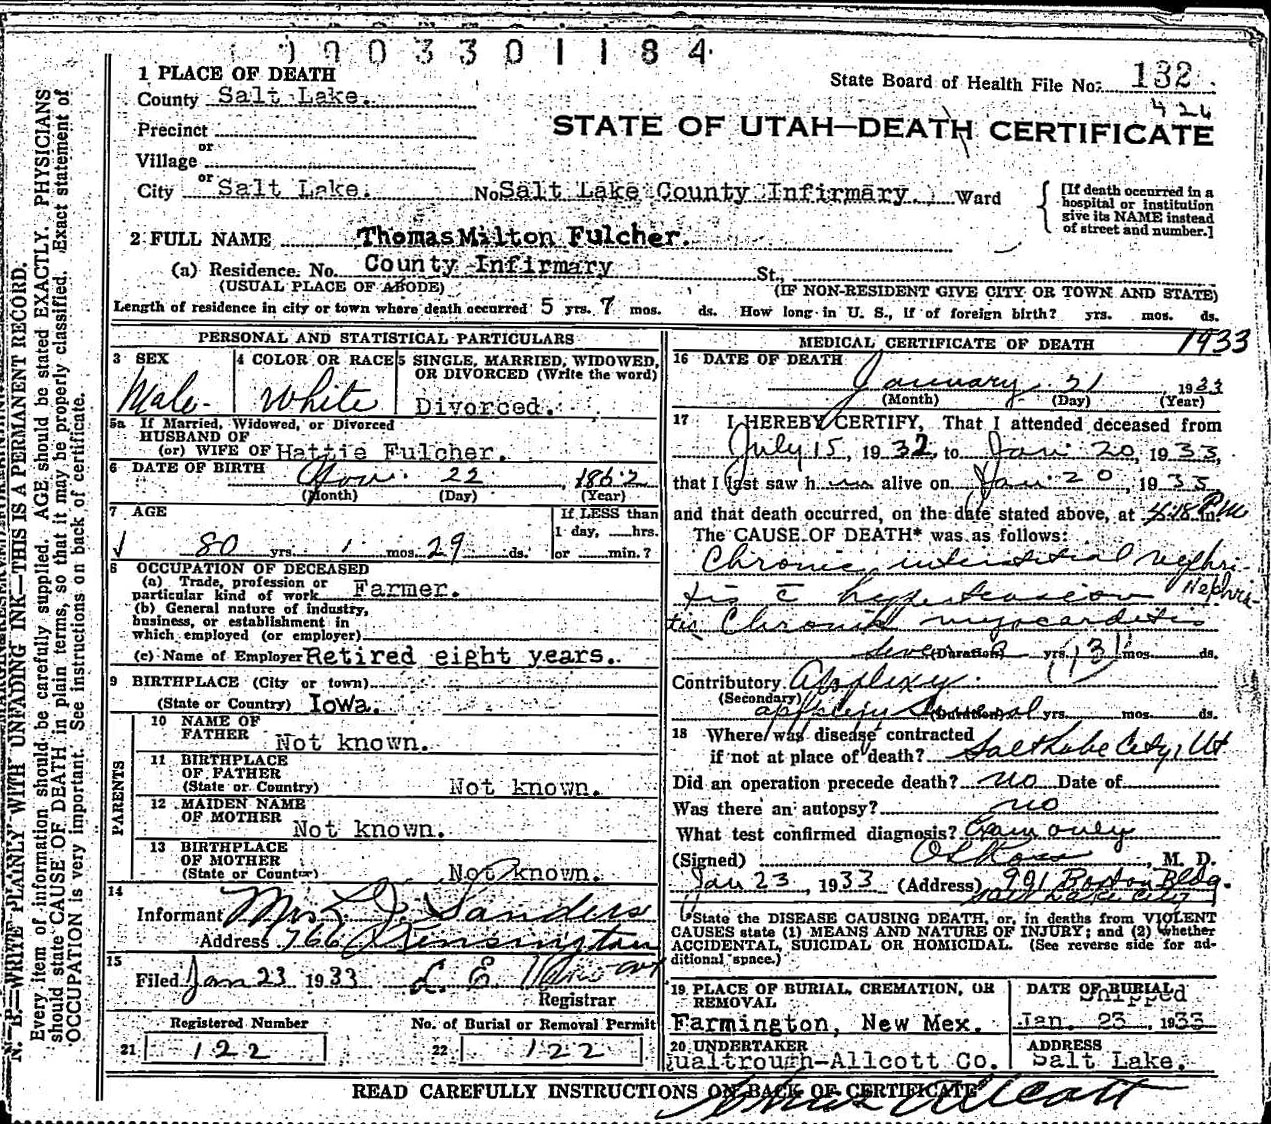 0 0 3 3 0 1 1 8 4
1 PLACE OF DEATH
County Salt Lake.
State Board of Health File No. 132
426
Precinct
STATE OF UTAH—DEATH CERTIFICATE
or
Village
or
City Salt Lake. No Salt Lake County Infirmary. Ward
[If death occurred in a hospital or institution give its NAME instead of street and number.]
2 FULL NAME Thomas Milton Fulcher.
(a) Residence. No. County Infirmary St.,
(USUAL PLACE OF ABODE) (IF NON-RESIDENT GIVE CITY OR TOWN AND STATE)
Length of residence in city or town where death occurred 5 yrs. 7 mos. ds. How long in U. S., if of foreign birth? yrs. mos. ds.
PERSONAL AND STATISTICAL PARTICULARS
3 SEX
Male
4 COLOR OR RACE
White
5 SINGLE, MARRIED, WIDOWED,
OR DIVORCED (Write the word)
Divorced.
5a If Married, Widowed, or Divorced
HUSBAND OF
(or) WIFE OF Hattie Fulcher.
6 DATE OF BIRTH Nov. 22, 1862
(Month) (Day) (Year)
7 AGE
80 yrs. 1 mos. 29 ds.
If LESS than
1 day, hrs.
or min.?
8 OCCUPATION OF DECEASED
(a) Trade, profession or
particular kind of work Farmer.
(b) General nature of industry,
business, or establishment in
which employed (or employer)
(c) Name of Employer Retired eight years.
9 BIRTHPLACE (City or town)
(State or Country) Iowa.
PARENTS
10 NAME OF
FATHER Not known.
11 BIRTHPLACE
OF FATHER
(State or Country) Not known.
12 MAIDEN NAME
OF MOTHER Not known.
13 BIRTHPLACE
OF MOTHER
(State or Country) Not known.
14
Informant Mrs L. J. Sanders
Address 766 Kensington
15
Filed Jan 23 1933 L. E.
Registrar
Registered Number
21 122
No. of Burial or Removal Permit
22 122
MEDICAL CERTIFICATE OF DEATH
1933
16 DATE OF DEATH
January 21, 1933
(Month) (Day) (Year)
17 I HEREBY CERTIFY, That I attended deceased from
July 15, 1932, to Jan. 20, 1933,
that I last saw him alive on Jan. 20, 1933
and that death occurred, on the date stated above, at 4:18 P.M
m.
The CAUSE OF DEATH* was as follows:
Chronic interstitial nephri-
tis c̄ hypertension Nephri-
tic Chronic myocarditis
(Duration) yrs. mos. ds.
Contributory Apoplexy.
(Secondary)
(Duration) yrs. mos. ds.
18 Where was disease contracted
if not at place of death? Salt Lake City, Ut
Did an operation precede death? no Date of
Was there an autopsy? no
What test confirmed diagnosis? Exam only
(Signed) M. D.
Jan 23, 1933 (Address) 991 Boston Bldg.
Salt Lake City
*State the DISEASE CAUSING DEATH, or, in deaths from VIOLENT
CAUSES state (1) MEANS AND NATURE OF INJURY; and (2) whether
ACCIDENTAL, SUICIDAL OR HOMICIDAL. (See reverse side for ad-
ditional space.)
19 PLACE OF BURIAL, CREMATION, OR
REMOVAL
Farmington, New Mex.
DATE OF BURIAL
Shipped
Jan. 23, 1933
20 UNDERTAKER
Qualtrough-Allcott Co.
ADDRESS
Salt Lake.
READ CAREFULLY INSTRUCTIONS ON BACK OF CERTIFICATE
Allcott
N. B.—WRITE PLAINLY WITH UNFADING INK—THIS IS A PERMANENT RECORD.
Every item of information should be carefully supplied. AGE should be stated EXACTLY. PHYSICIANS
should state CAUSE OF DEATH in plain terms, so that it may be properly classified. Exact statement of
OCCUPATION is very important. See instructions on back of certificate.